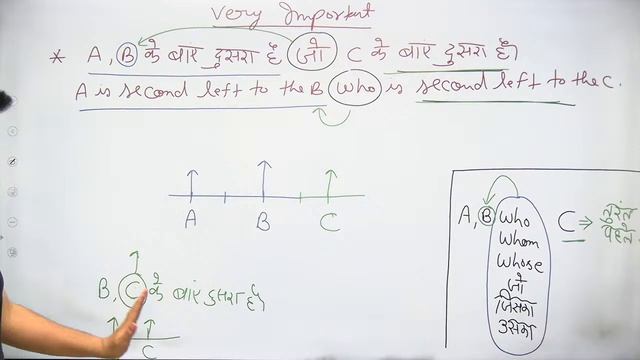 Very Important
* A, B के बाएं दूसरा है जो C के बाएं दूसरा है।
A is second left to the B who is second left to the C.
A B C
A, B who C ⇒ तुरंत पहले
whom
whose
जो
जिसका
उसका
B, C के बाएं दूसरा है।
C